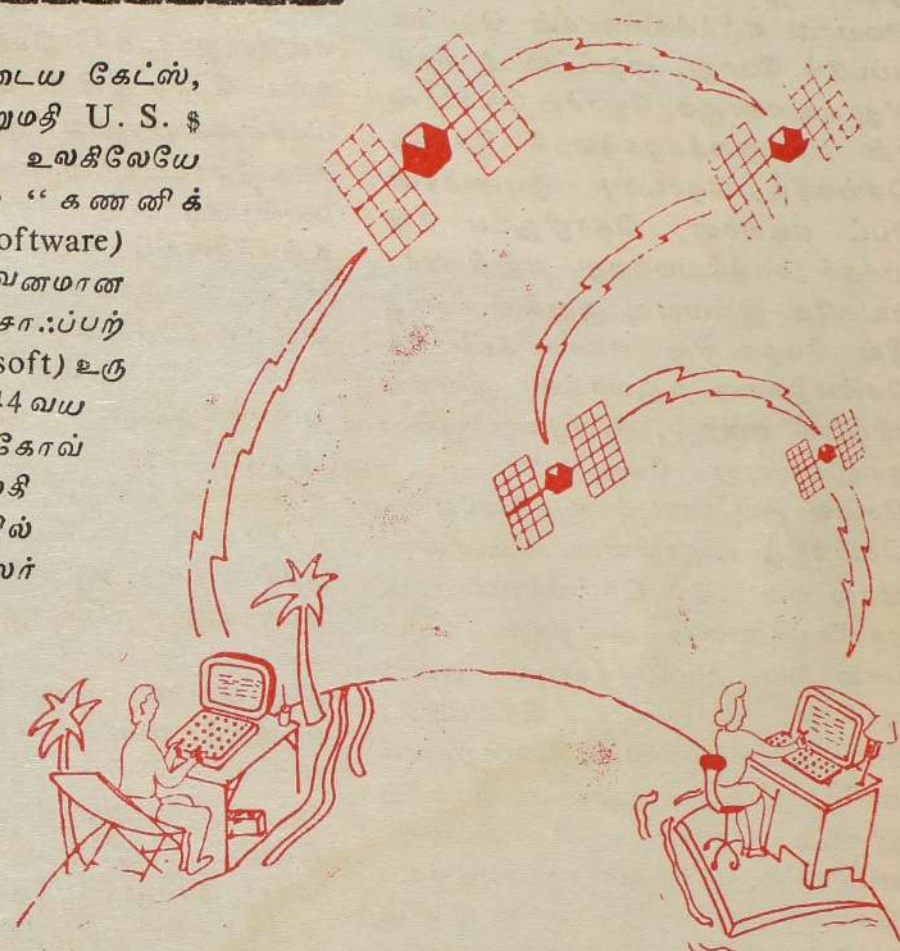 டைய கேட்ஸ்,
றுமதி U. S. $
உலகிலேயே
“ கணனிக்
oftware)
வனமான
சாஃப்பற்
soft) உரு
4 வய
கோவ்
மதி
ில்
லர்